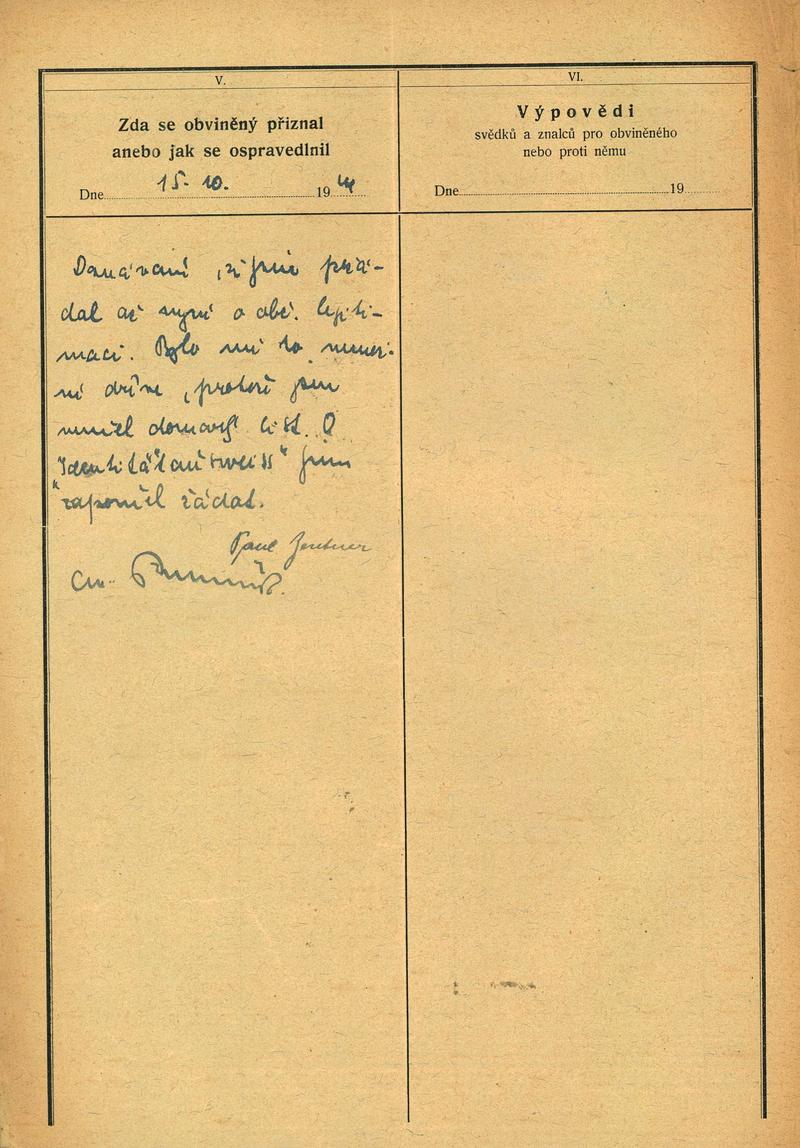 V.
Zda se obviněný přiznal
anebo jak se ospravedlnil
Dne 15. 10. 19 41
VI.
Výpovědi
svědků a znalců pro obviněného
nebo proti němu
Dne 19
Doznávám, že jsem žá-
dal až nyní o obč. legiti-
maci. Bylo mi to
dříve, protože jsem
neměl domovský list. O
"Identitätsausweis" jsem
zapomněl žádat.
Paul